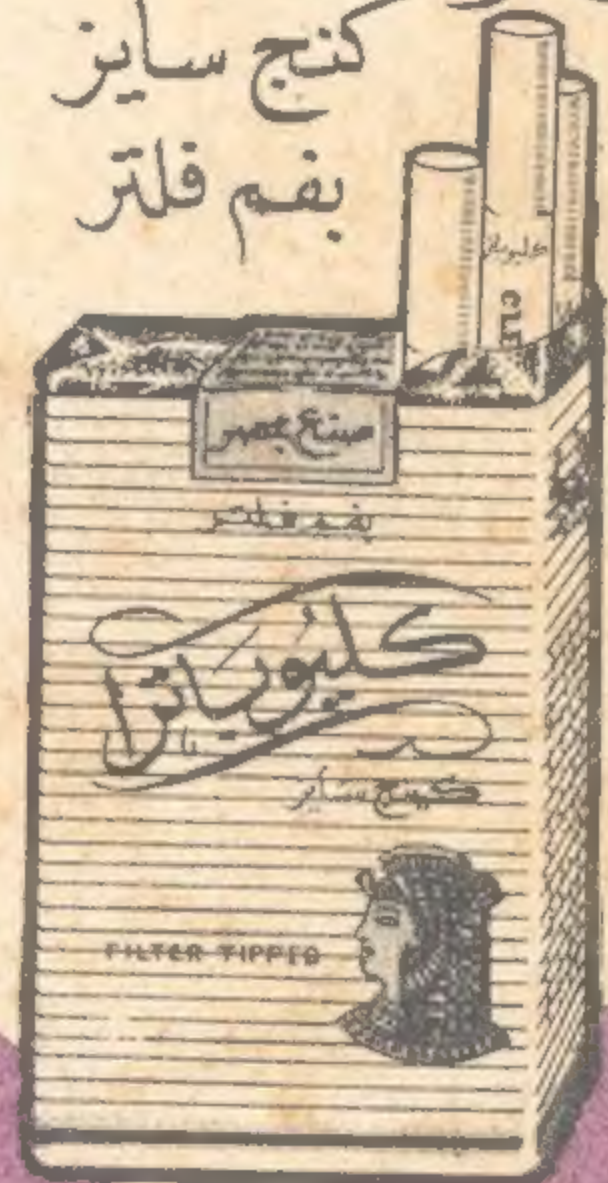 كنج سايز
بفم فلتر
كليوباترا
CLE
صنع بمصر
بفم فلتر
كليوباترا
كينج سايز
FILTER TIPPED